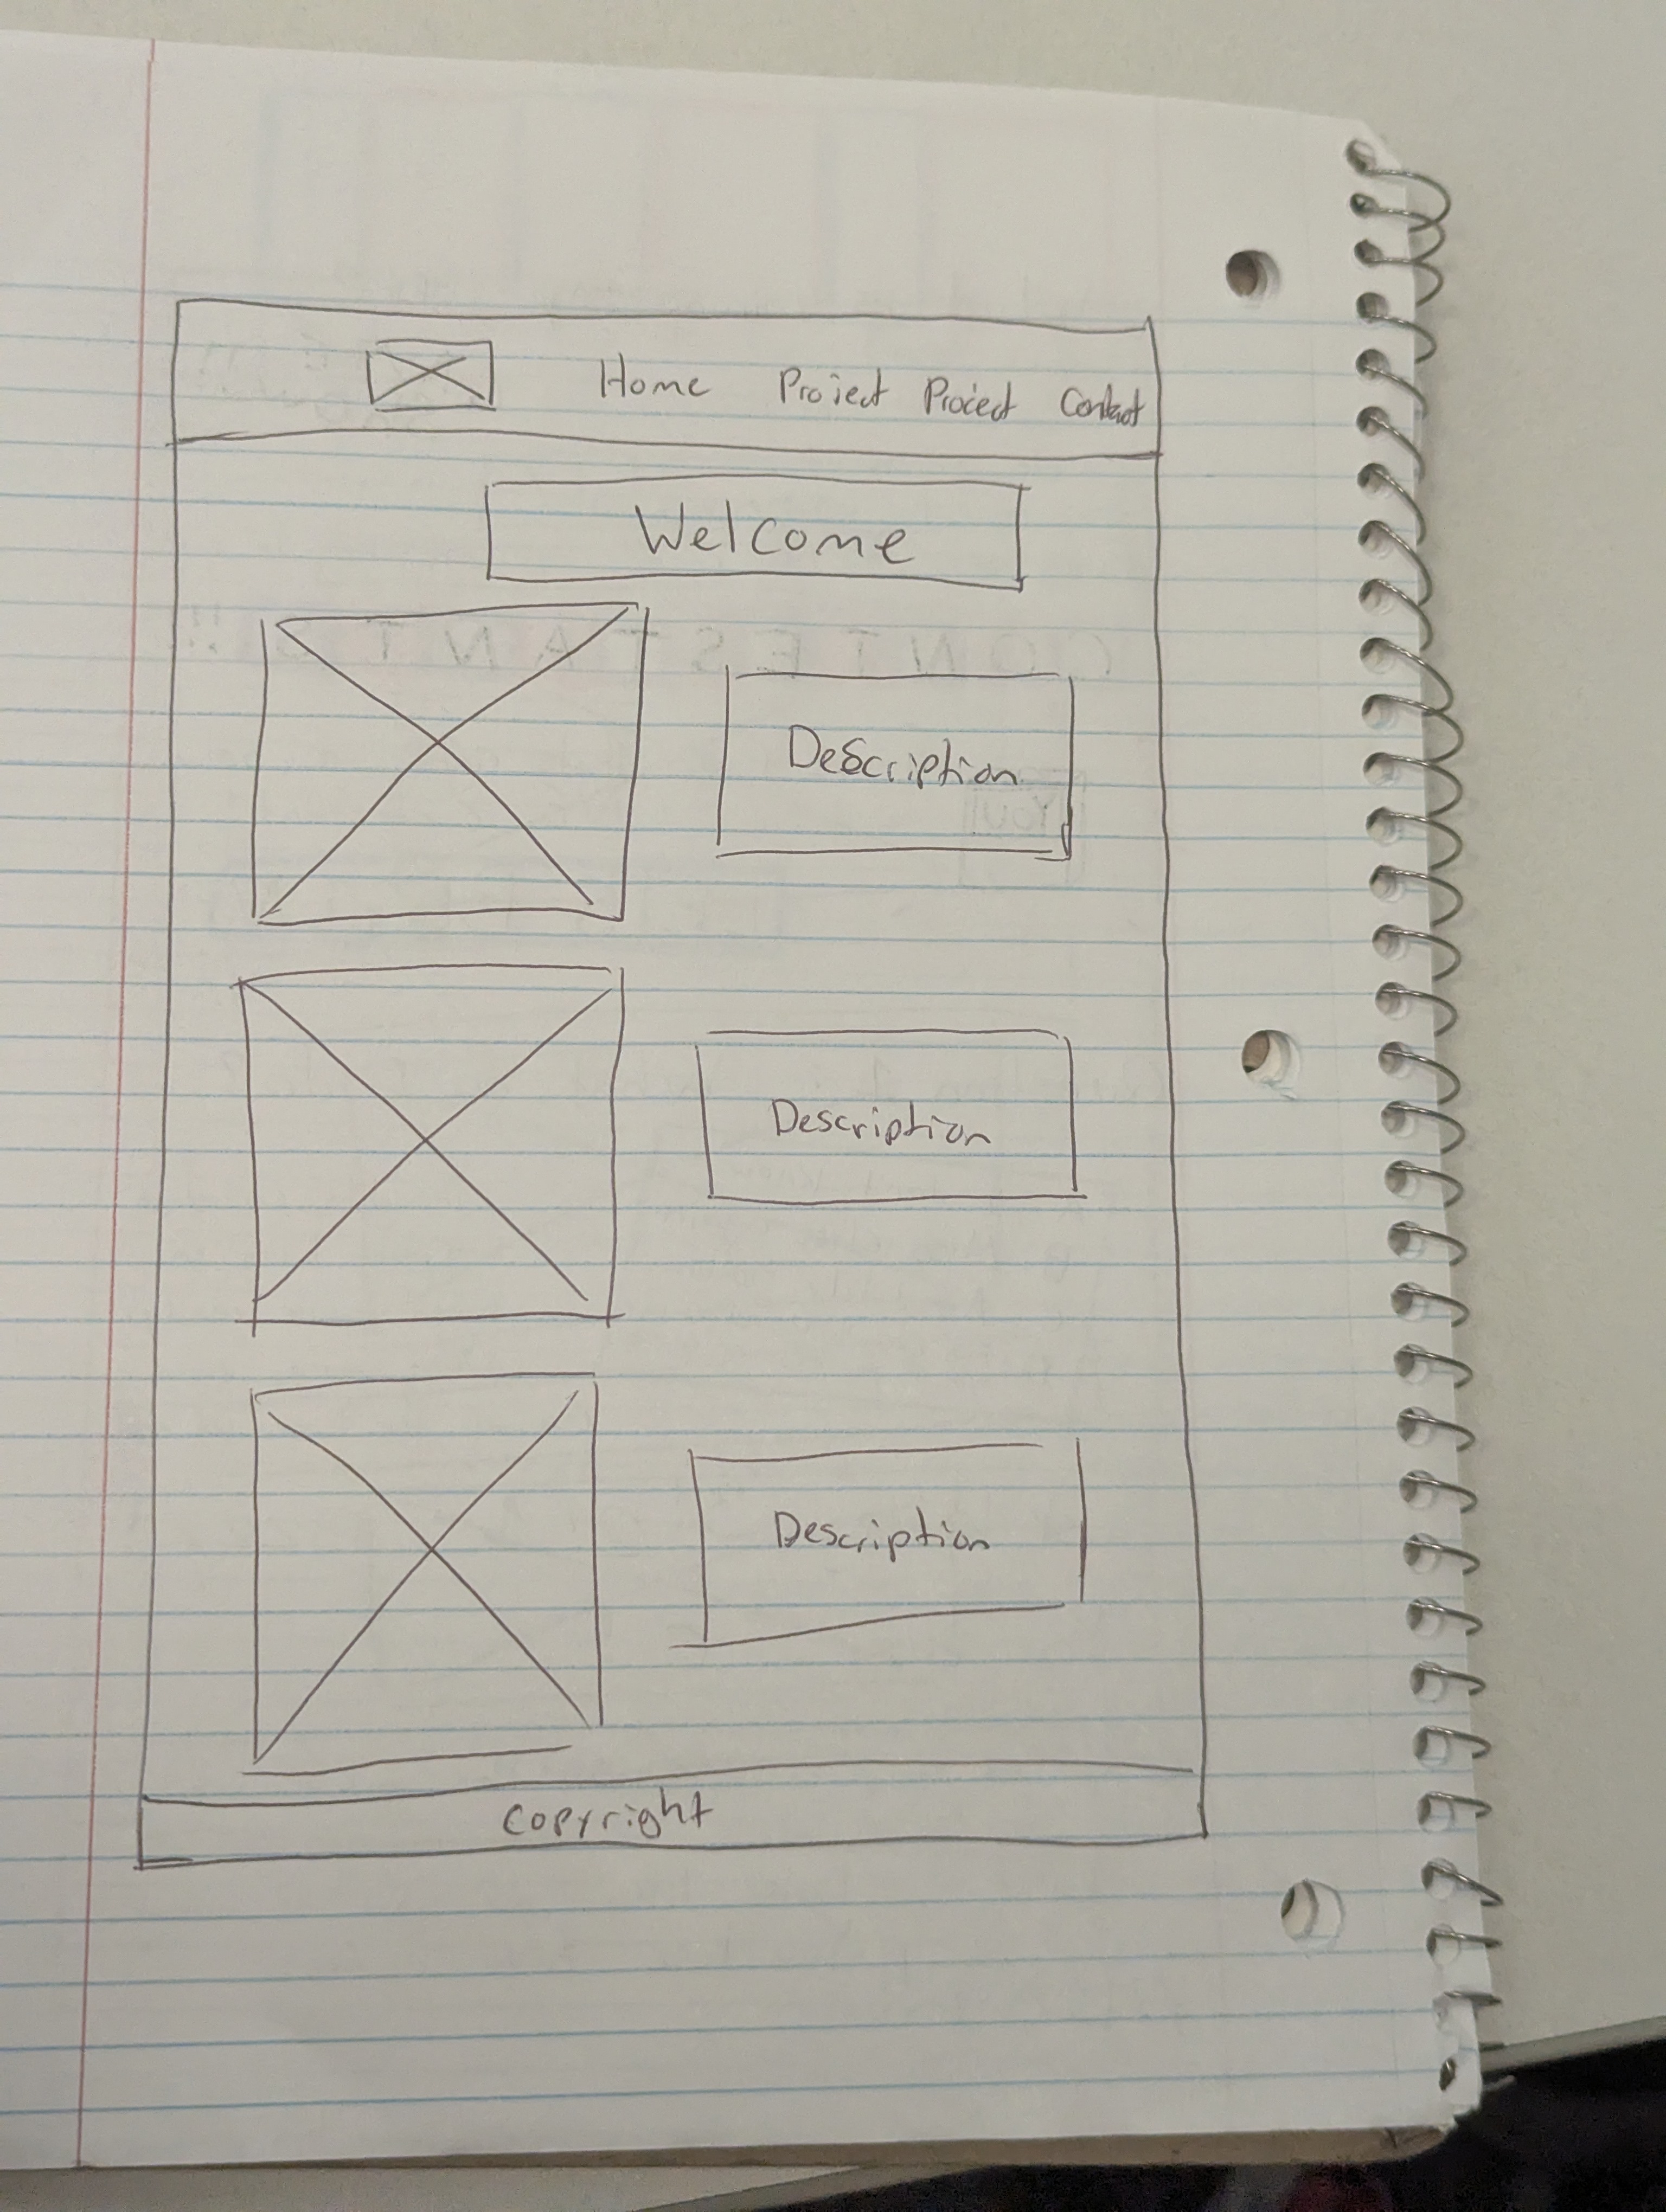 Home Project Project Contact
Welcome
Description
Description
Description
Copyright